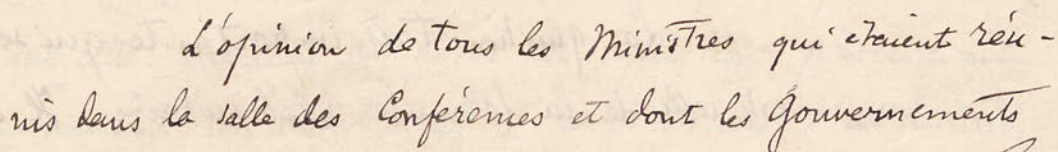 L'opinion de tous les Ministres qui étaient réu-
nis dans la salle des Conférences et dont les Gouvernements